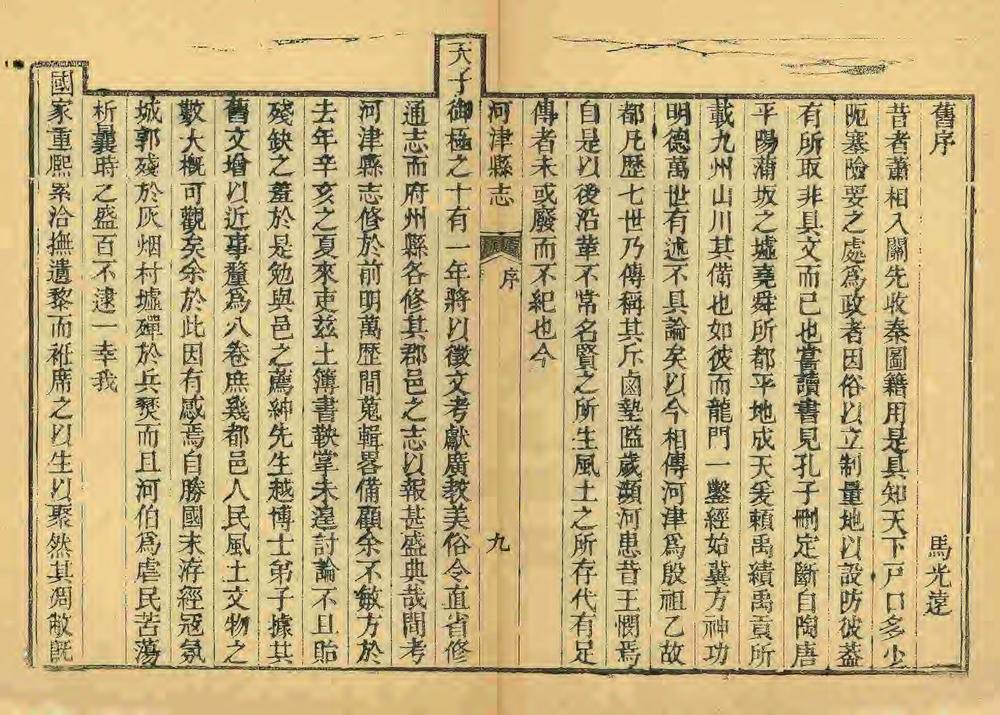 舊序　馬光遠
昔者蕭相入關先收秦圖籍用是具知天下戸口多少
阨塞險要之處為政者因俗以立制量地以設防彼葢
有所取非具文而已也嘗讀書見孔子刪定斷自陶唐
平陽蒲坂之墟堯舜所都平地成天爰賴禹績禹貢所
載九州山川其備也如彼而龍門一鑿經始冀方神功
明德萬世有述不具論矣以今相傳河津為殷祖乙故
都凡歷七世乃傳稱其斥鹵墊隘歲瀕河患昔王憫焉
自是以後沿革不常名賢之所生風土之所存代有足
傳者未或廢而不紀也今
河津縣志　序　九
天子御極之十有一年將以徵文考獻廣教美俗令直省修
通志而府州縣各修其郡邑之志以報甚盛典哉間考
河津縣志修於前明萬歷間蒐輯畧備顧余不敏方於
去年辛亥之夏來吏茲土簿書鞅掌未遑討論不且貽
殘缺之羞於是勉與邑之薦紳先生越博士弟子據其
舊文增以近事釐為八卷庶幾都邑人民風土文物之
數大概可觀矣余於此因有感焉自勝國末洊經寇氛
城郭殘於灰烟村墟殫於兵燹而且河伯為虐民苦蕩
析曩時之盛百不逮一幸我
國家重熙累洽撫遺黎而袵席之以生以聚然其凋敝旣